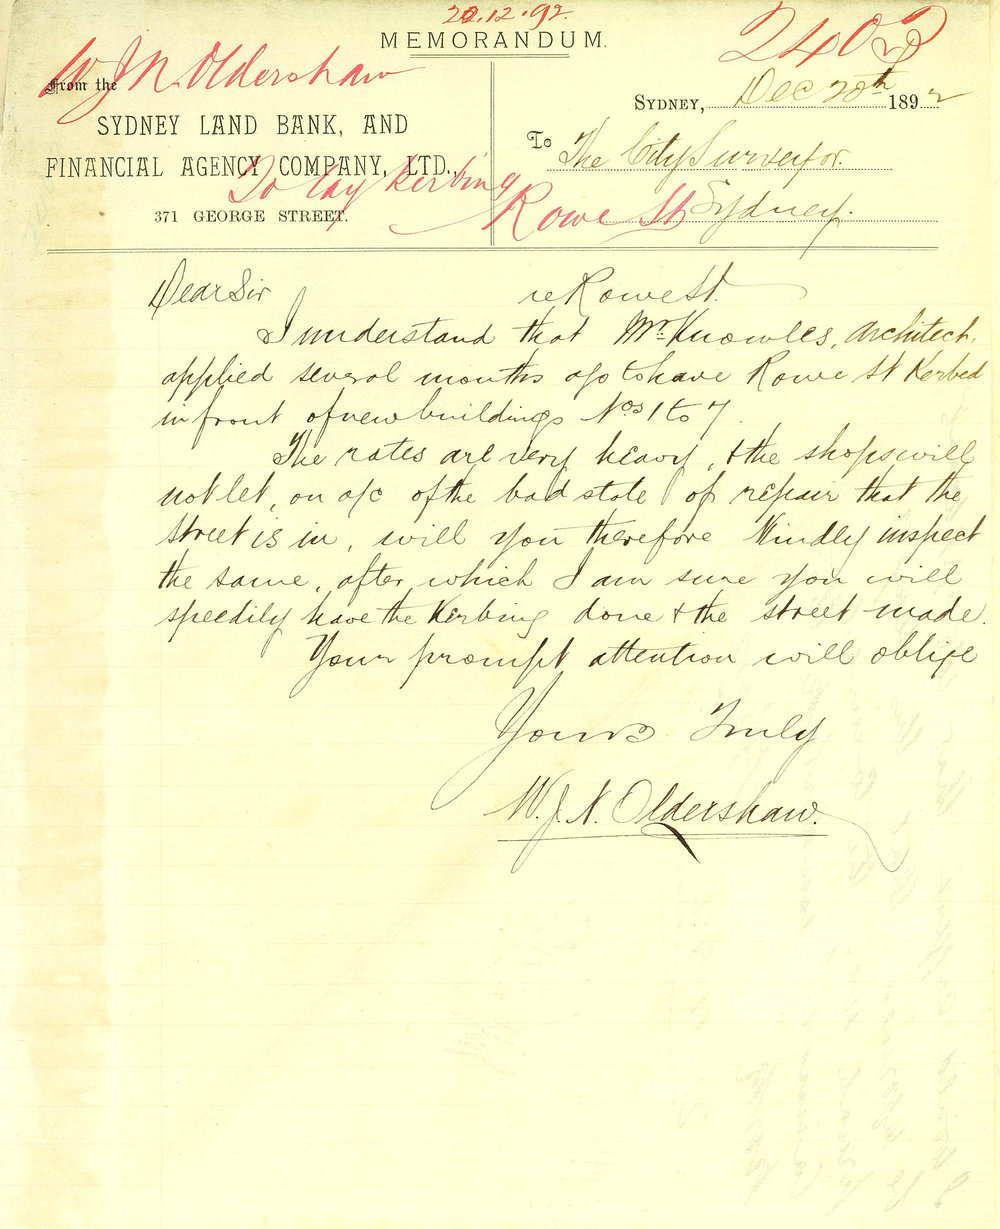 20.12.92.
MEMORANDUM.
2403
W J N Oldershaw
From the
SYDNEY LAND BANK, AND
FINANCIAL AGENCY COMPANY, LTD.,
371 GEORGE STREET.
To lay Kerbing
Rowe St
SYDNEY, Dec 20th 1892
To The City Surveyor.
Sydney.
Dear Sir re Rowe St.
I understand that Mr. Knowles, Architect,
applied several months ago to have Rowe St Kerbed
in front of new buildings Nos 1 to 7
The rates are very heavy, & the shops will
not let, on a/c of the bad state of repair that the
street is in, will you therefore kindly inspect
the same, after which I am sure you will
speedily have the Kerbing done & the street made.
Your prompt attention will oblige
Yours Truly
W. J. N. Oldershaw.